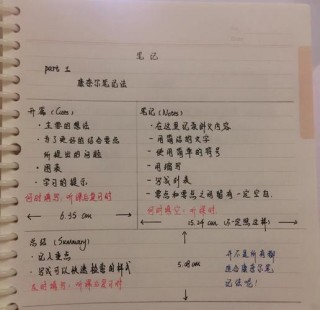 笔记
part 1
康奈尔笔记法
开篇 (Cues)
· 主要的想法
· 为了更好的结合要点
所提出的问题
· 图表
· 学习的提示
何时填写: 听课与复习时
6.35 cm
笔记 (Notes)
· 在这里记录讲义内容
- 用简洁的文字
- 使用简单的符号
- 用缩写
- 写成列表
- 要点和要点之间留有一定空白
何时填写: 听课时
15.24 cm (不一定照这样)
总结 (Summary)
· 记入重点
· 写成可以快速检索的样式
何时填写: 听课与复习时
5.08 cm
并不是所有都
适合康奈尔笔
记法哦!